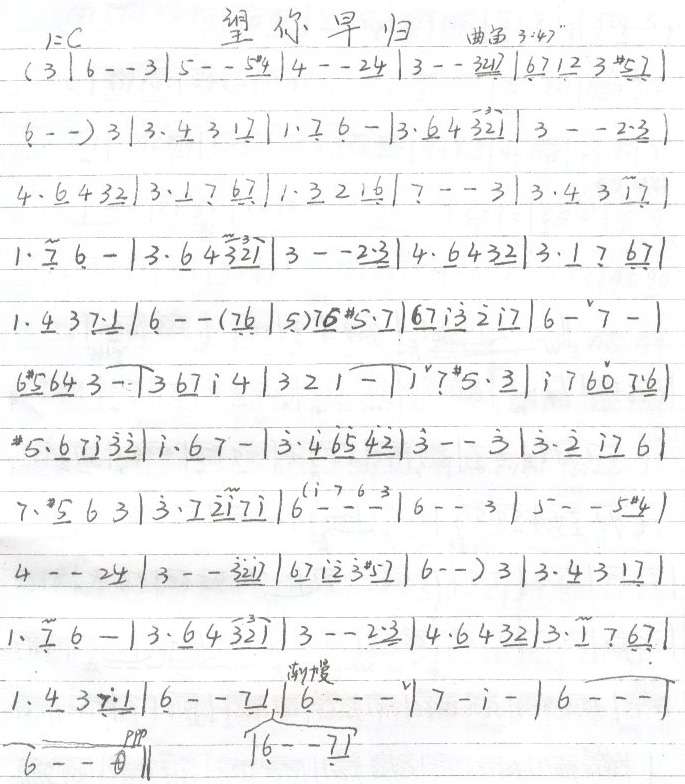 望你早归
1=C 曲笛 3:47"
( 3 | 6 - - 3 | 5 - - 5#4 | 4 - - 24 | 3 - - 3217 | 6712 3 #57 |
6 - - ) 3 | 3. 4 3 17 | 1. 7 6 - | 3. 6 4 321 | 3 - - 2.3 |
4. 6 4 32 | 3. 1 7 67 | 1. 3 2 16 | 7 - - 3 | 3. 4 3 17 |
1. 7 6 - | 3. 6 4 321 | 3 - - 2.3 | 4. 6 4 32 | 3. 1 7 67 |
1. 4 3 7.1 | 6 - - (76 | 5) 76 #5. 7 | 67 i3 2 i7 | 6 - ˅ 7 - |
6#564 3 - | 3 67 i 4 | 3 2 1 - | i ˅ 7 #5. 3 | i 7 60 ˅ 7.6 |
#5. 6 7i 32 | i. 6 7 - | 3. 4 65 42 | 3 - - 3 | 3. 2 i7 6 |
7. #5 6 3 | 3. 7 2i7i | 6 (i - 7 6 3 - - - | 6 - - 3 | 5 - - 5#4 |
4 - - 24 | 3 - - 3217 | 67 i2 3#57 | 6 - - ) 3 | 3. 4 3 17 |
1. 7 6 - | 3. 6 4 321 | 3 - - 2.3 | 4. 6 4 32 | 3. 1 7 67 |
渐慢
1. 4 3 7.1 | 6 - - 71 | 6 - - - ˅ | 7 - i - | 6 - - - |
6 - - 0 || ppp | 6 - - 71